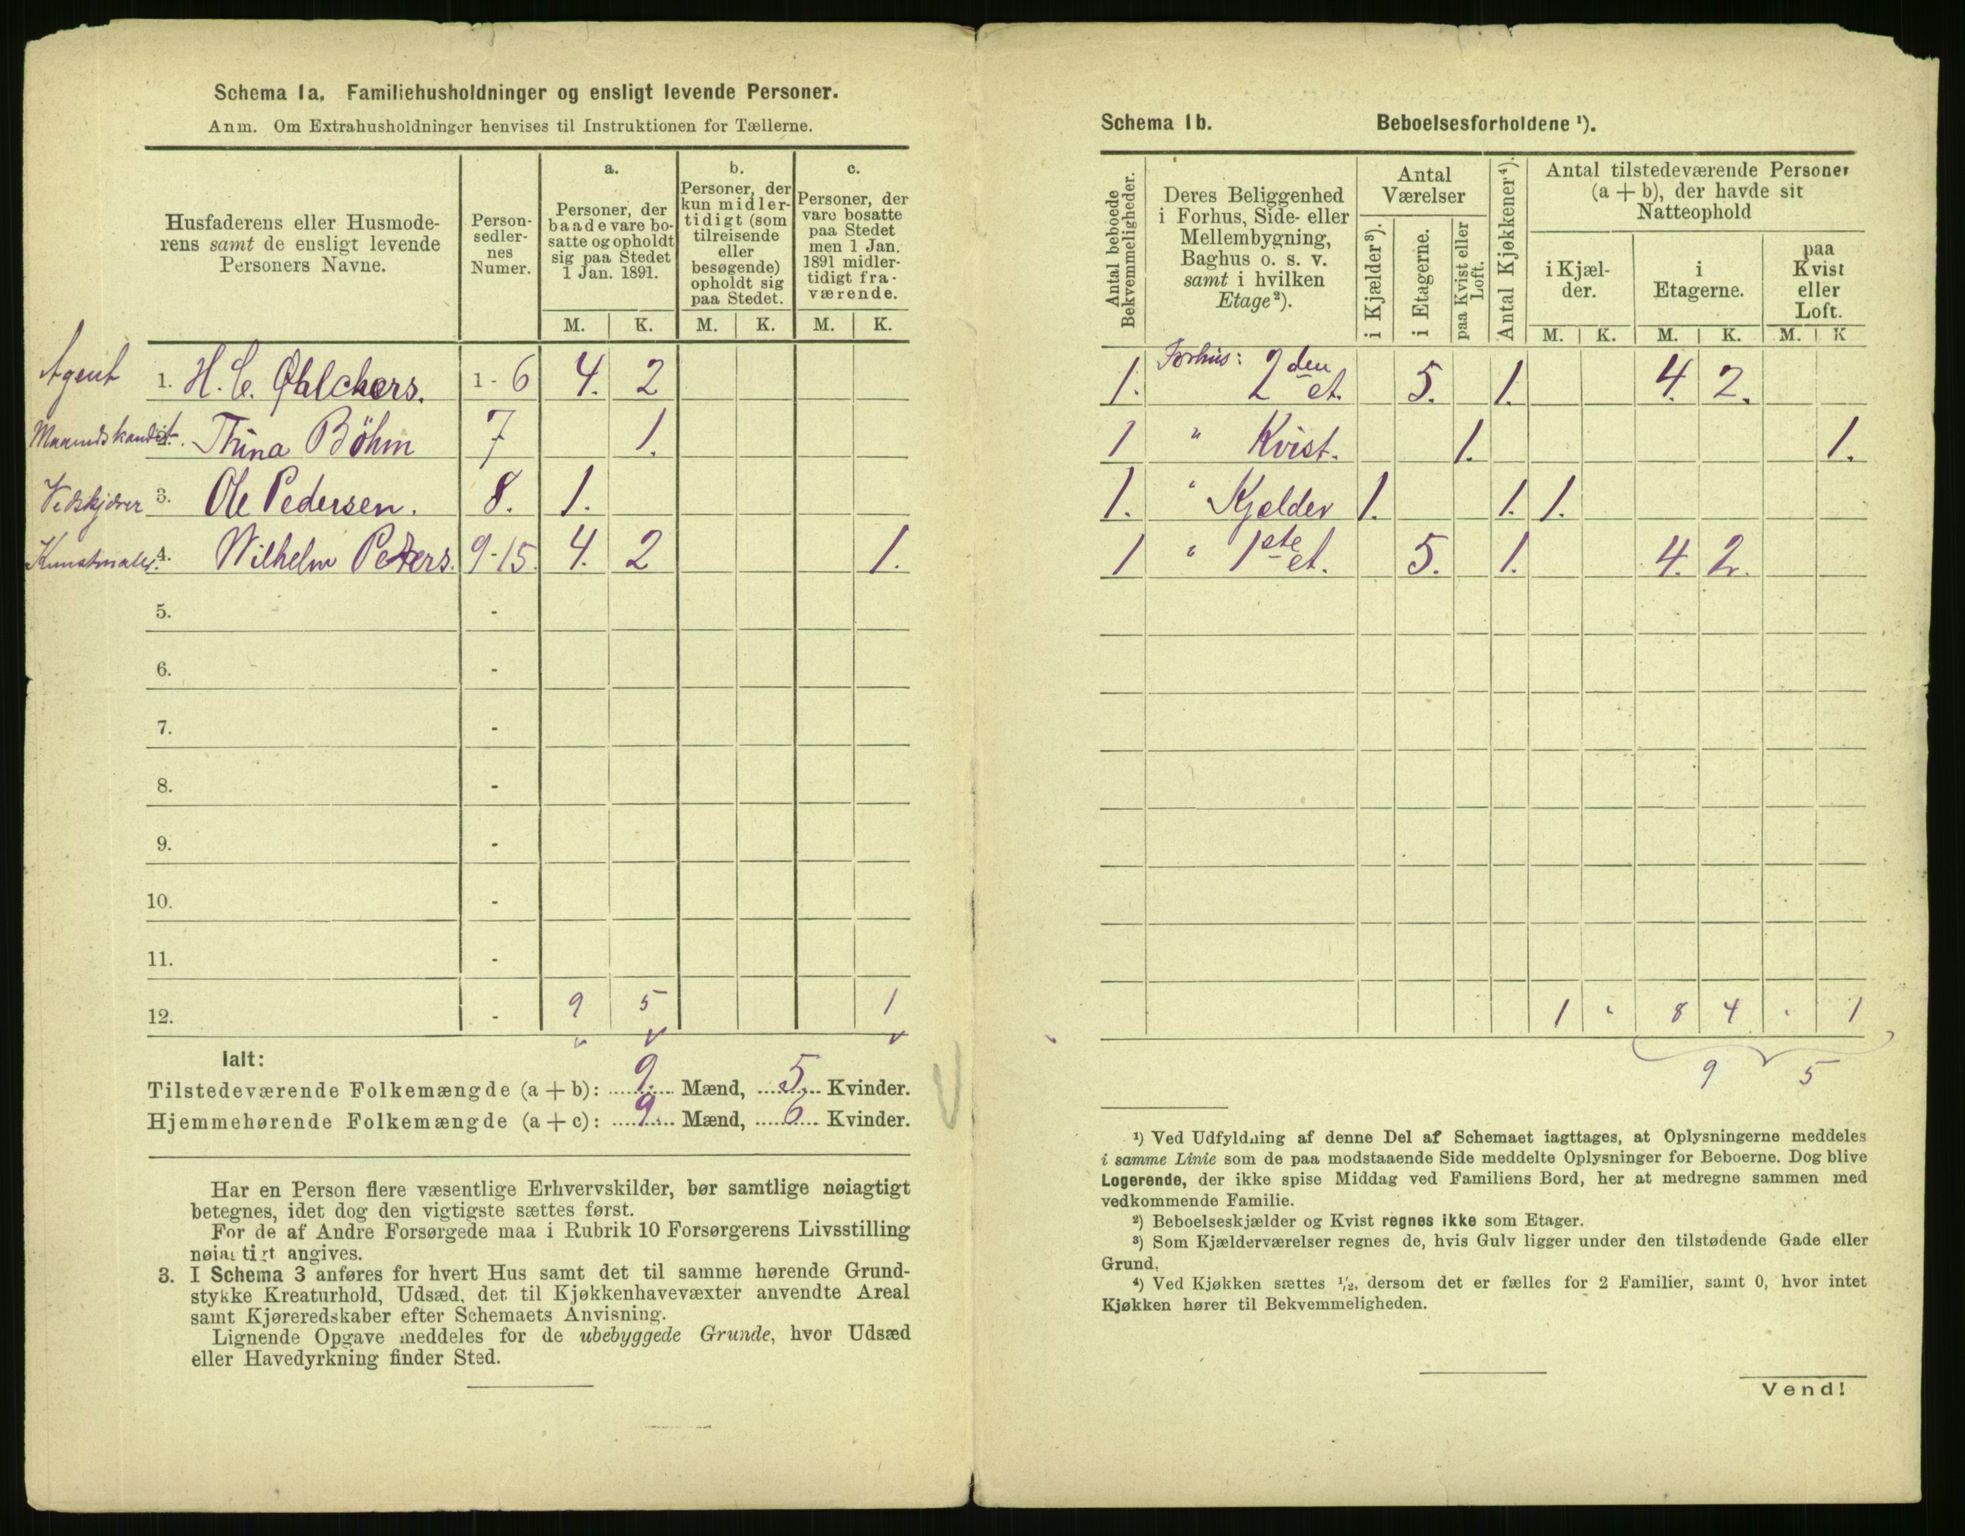 Schema 1a. Familiehusholdninger og ensligt levende Personer.
Anm. Om Extrahusholdninger henvises til Instruktionen for Tællerne.
Husfaderens eller Husmoderens samt de ensligt levende Personers Navne.
Personsedlernes Numer.
a.
Personer, der baade vare bosatte og opholdt sig paa Stedet 1 Jan. 1891.
b.
Personer, der kun midlertidigt (som tilreisende eller besøgende) opholdt sig paa Stedet.
c.
Personer, der vare bosatte paa Stedet men 1 Jan. 1891 midlertidigt fraværende.
M. K. M. K. M. K.
Agent 1. H. C. Øhlckers. 1-6 4. 2
2. Thina Böhm 7 1.
Vedskjærer 3. Ole Pedersen. 8. 1.
Kunstmaler. 4. Wilhelm Peters. 9-15. 4. 2 1.
5. -
6. -
7. -
8. -
9. -
10. -
11. -
12. - 9 5 1
Ialt:
Tilstedeværende Folkemængde (a + b): 9. Mænd, 5. Kvinder.
Hjemmehørende Folkemængde (a + c): 9. Mænd, 6 Kvinder.
Har en Person flere væsentlige Erhvervskilder, bør samtlige nøiagtigt
betegnes, idet dog den vigtigste sættes først.
For de af Andre Forsørgede maa i Rubrik 10 Forsørgerens Livsstilling
nøiagtigt angives.
3. I Schema 3 anføres for hvert Hus samt det til samme hørende Grund-
stykke Kreaturhold, Udsæd, det til Kjøkkenhavevæxter anvendte Areal
samt Kjøreredskaber efter Schemaets Anvisning.
Lignende Opgave meddeles for de ubebyggede Grunde, hvor Udsæd
eller Havedyrkning finder Sted.
Schema 1b. Beboelsesforholdene ¹).
Antal beboede Bekvemmeligheder.
Deres Beliggenhed i Forhus, Side- eller Mellembygning, Baghus o. s. v. samt i hvilken Etage ²).
Antal Værelser
i Kjælder ³).
i Etagerne.
paa Kvist eller Loft.
Antal Kjøkkener ⁴).
Antal tilstedeværende Personer (a + b), der havde sit Natteophold
i Kjælder.
i Etagerne.
paa Kvist eller Loft.
M. K. M. K. M. K
1. Forhus: 2den et. 5. 1. 4. 2.
1 " Kvist. 1. 1.
1. " Kjælder 1. 1. 1.
1 " 1ste et. 5. 1. 4. 2.
1 " 8 4 " 1
9 5
¹) Ved Udfyldning af denne Del af Schemaet iagttages, at Oplysningerne meddeles
i samme Linie som de paa modstaaende Side meddelte Oplysninger for Beboerne. Dog blive
Logerende, der ikke spise Middag ved Familiens Bord, her at medregne sammen med
vedkommende Familie.
²) Beboelseskjælder og Kvist regnes ikke som Etager.
³) Som Kjælderværelser regnes de, hvis Gulv ligger under den tilstødende Gade eller
Grund.
⁴) Ved Kjøkken sættes ½, dersom det er fælles for 2 Familier, samt 0, hvor intet
Kjøkken hører til Bekvemmeligheden.
Vend!